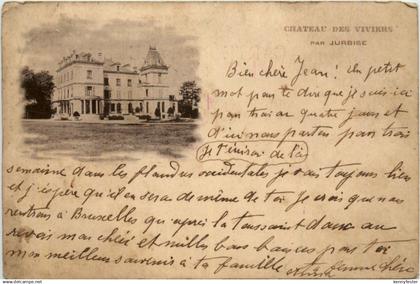 CHATEAU DES VIVIERS
PAR JURBISE
Bien chère Jean! Un petit
mot pour te dire que je suis ici
pour trois ou quatre jours et
d'ici nous partons pour trois
Je t'écrirai de là
semaine dans les flandres occidentales je vais toujours bien
et j'espère qu'il en sera de même de toi Je crois que nous
rentrons à Bruxelles qu'après la toussaint donc au
revoir ma chère et mille bons baisers pour toi
mon meilleurs souvenir à ta famille